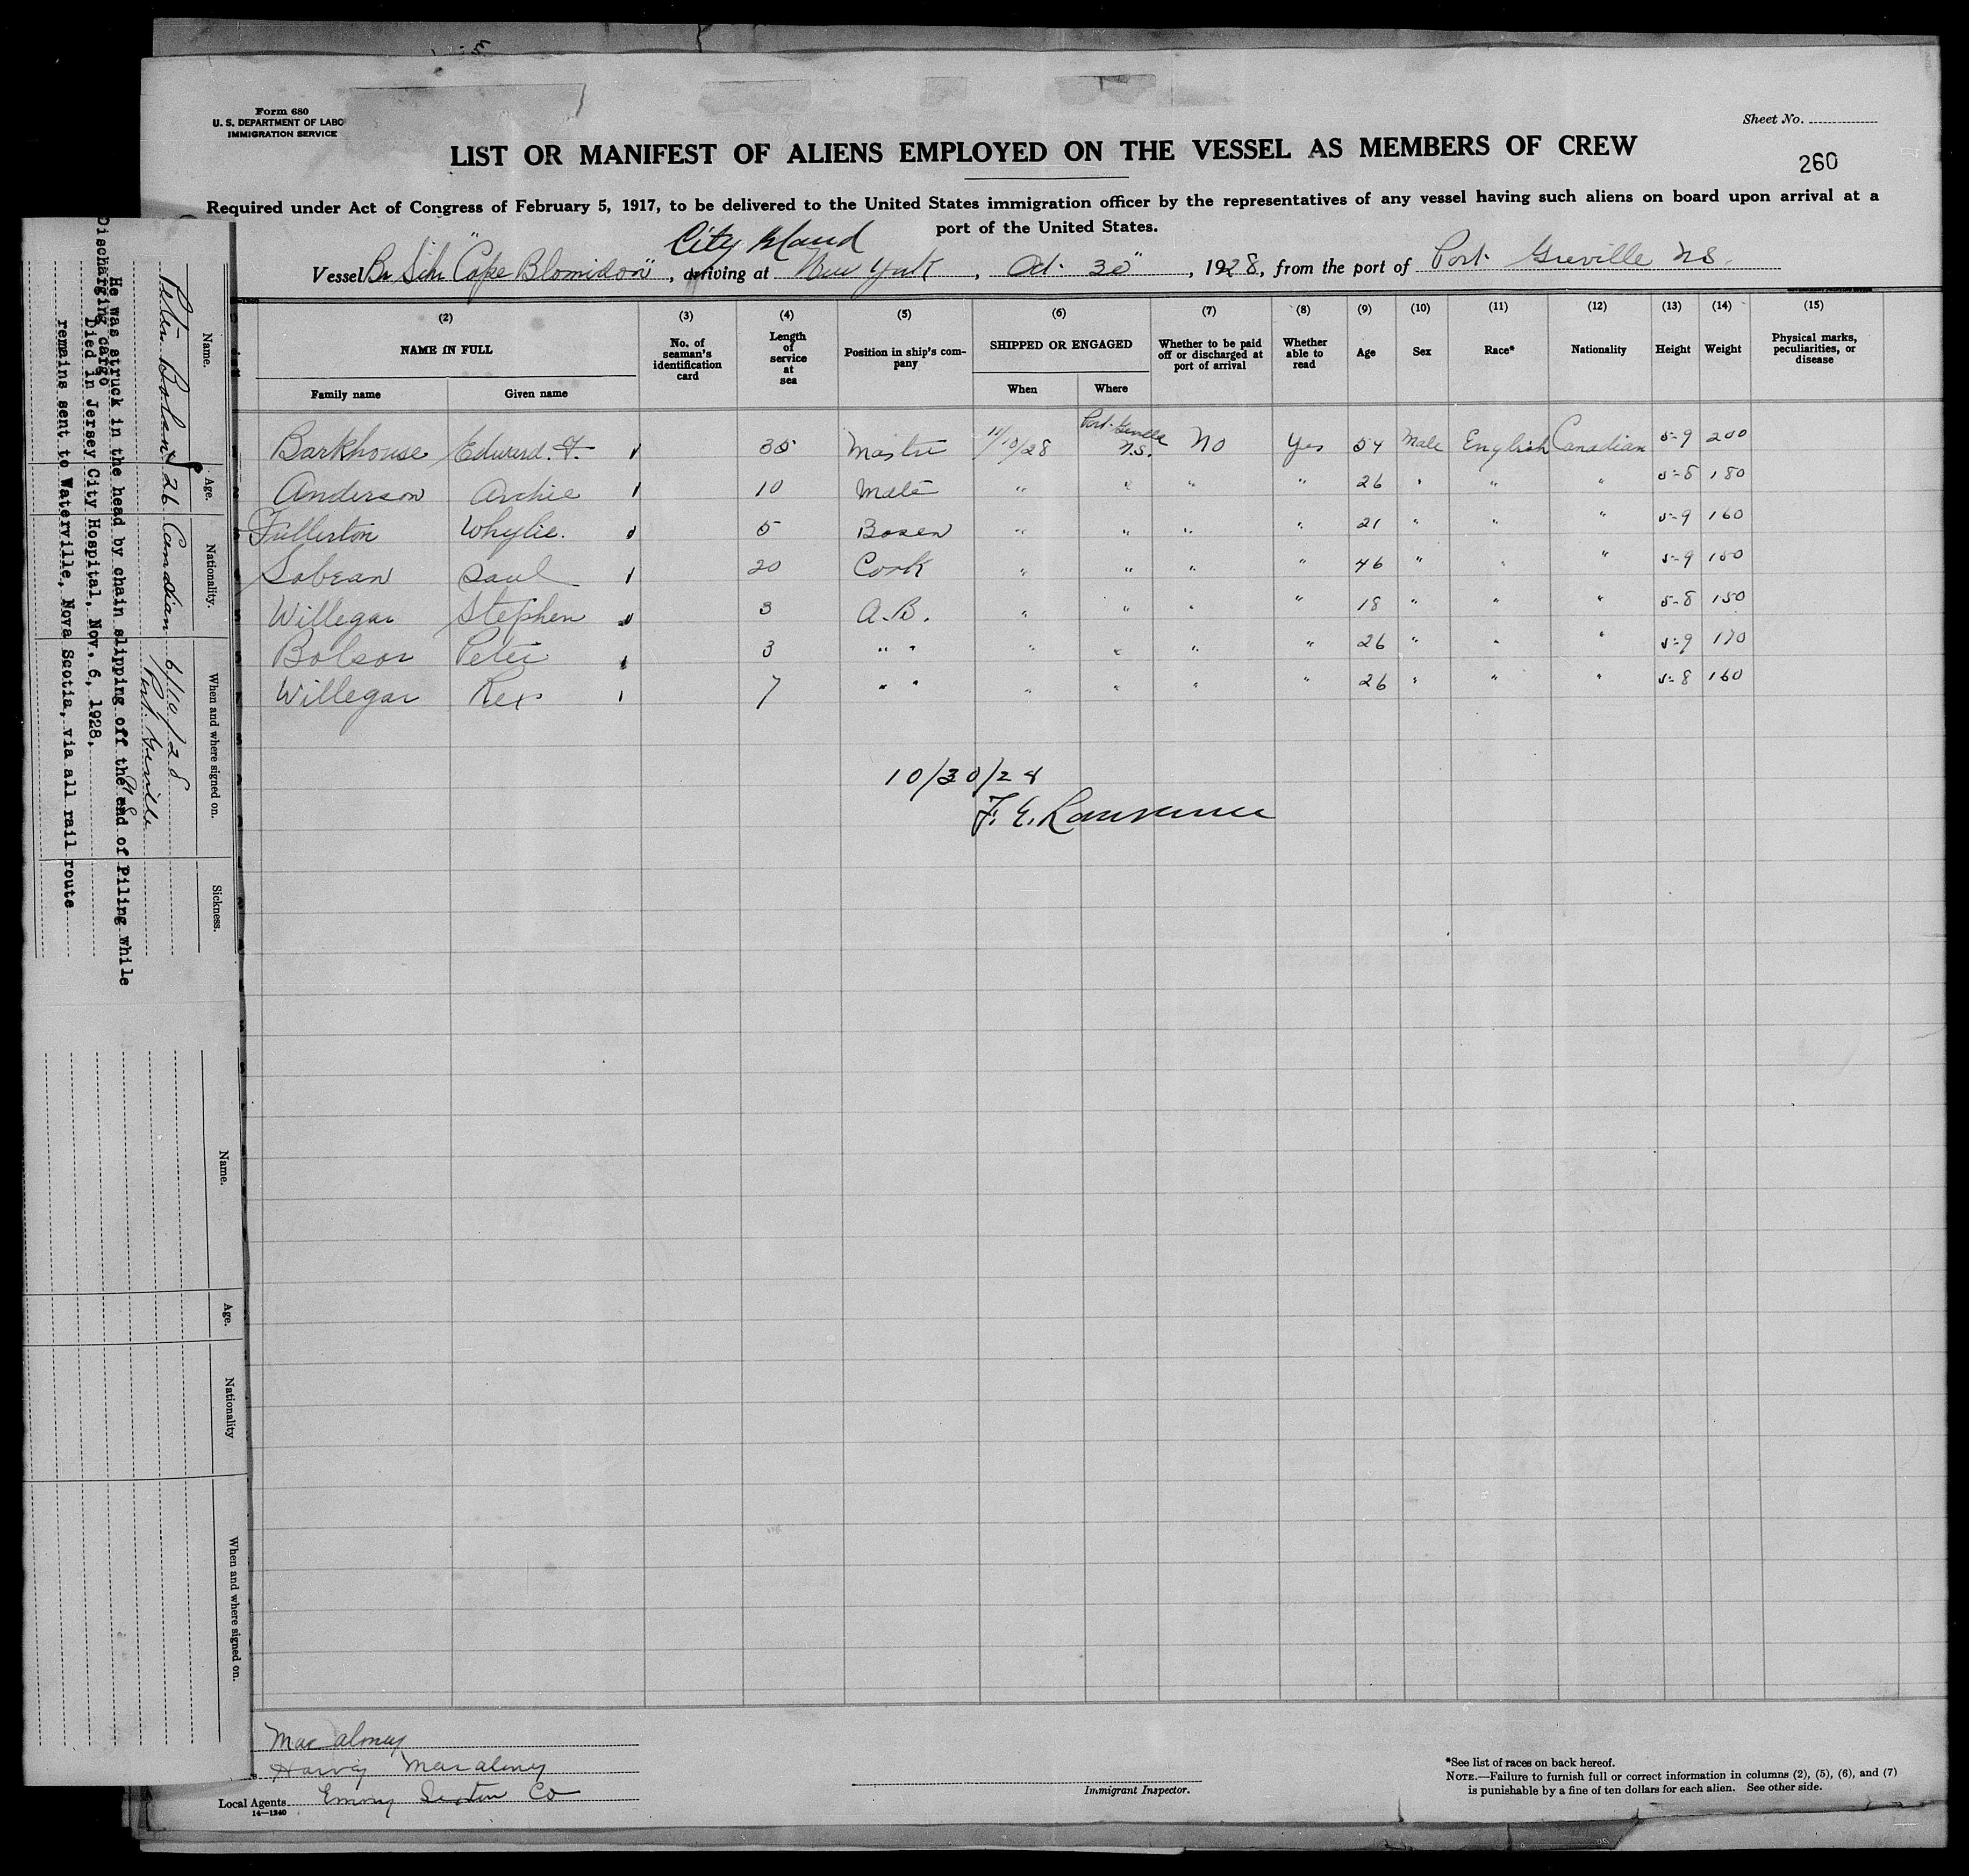 Form 680
U. S. DEPARTMENT OF LABO
IMMIGRATION SERVICE
Sheet No.
LIST OR MANIFEST OF ALIENS EMPLOYED ON THE VESSEL AS MEMBERS OF CREW
260
Required under Act of Congress of February 5, 1917, to be delivered to the United States immigration officer by the representatives of any vessel having such aliens on board upon arrival at a
port of the United States.
City Island
Vessel Br Sch "Cape Blomidon", arriving at New York, Oct. 30", 1928, from the port of Port Greville NS.
(2) (3) (4) (5) (6) (7) (8) (9) (10) (11) (12) (13) (14) (15)
NAME IN FULL
Family name Given name
No. of seaman's identification card
Length of service at sea
Position in ship's company
SHIPPED OR ENGAGED
When Where
Whether to be paid off or discharged at port of arrival
Whether able to read
Age
Sex
Race*
Nationality
Height
Weight
Physical marks, peculiarities, or disease
1 Barkhouse Edward. F. 35 Master /10/28 Port Greville N.S. No Yes 54 Male English Canadian 5-9 200
2 Anderson Archie 10 Mate " " " " 26 " " " 5-8 180
3 Fullerton Whylie. 5 Bosen " " " " 21 " " " 5-9 160
4 Sabean Saul 20 Cook " " " " 46 " " " 5-9 150
5 Willegar Stephen 3 A.B. " " " " 18 " " " 5-8 150
Bolsor Peter 3 " " " " " " 26 " " " 5-9 170
7 Willegar Rex 7 " " " " " " 26 " " " 5-8 160
10/30/28
F. E. Lawrence
Name. Age. Nationality. When and where signed on. Sickness.
Peter 26 Canadian 6/10/28
Port Greville
He was struck in the head by chain slipping off the end of Piling while
Discharging cargo
Died in Jersey City Hospital, Nov. 6, 1928,
remains sent to Waterville, Nova Scotia, via all rail route
Name. Age. Nationality When and where signed on.
Macaloney
Harvey Macaloney
Local Agents Emory Sexton Co
14—1240
Immigrant Inspector.
*See list of races on back hereof.
NOTE.—Failure to furnish full or correct information in columns (2), (5), (6), and (7)
is punishable by a fine of ten dollars for each alien. See other side.